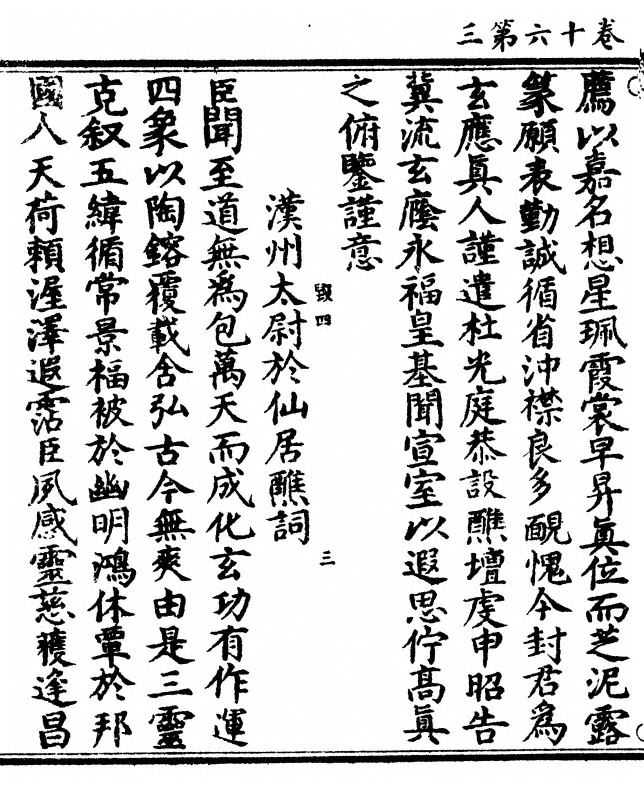 卷十六第三
薦以嘉名想星珮霞裳早昇真位而芝泥露
篆願表勤誠循省沖襟良多靦愧今封君為
玄應真人謹遣杜光庭恭設醮壇虔申昭告
冀流玄廕永福皇基聞宣室以遐思佇髙真
之俯鑒謹意
漢州太尉於仙居醮詞
毀四
三
臣聞至道無為包萬天而成化玄功有作運
四象以陶鎔覆載含弘古今無爽由是三靈
克叙五緯循常景福被於幽明鴻休覃於邦
國人天荷賴渥澤遐霑臣夙感靈慈獲逢昌